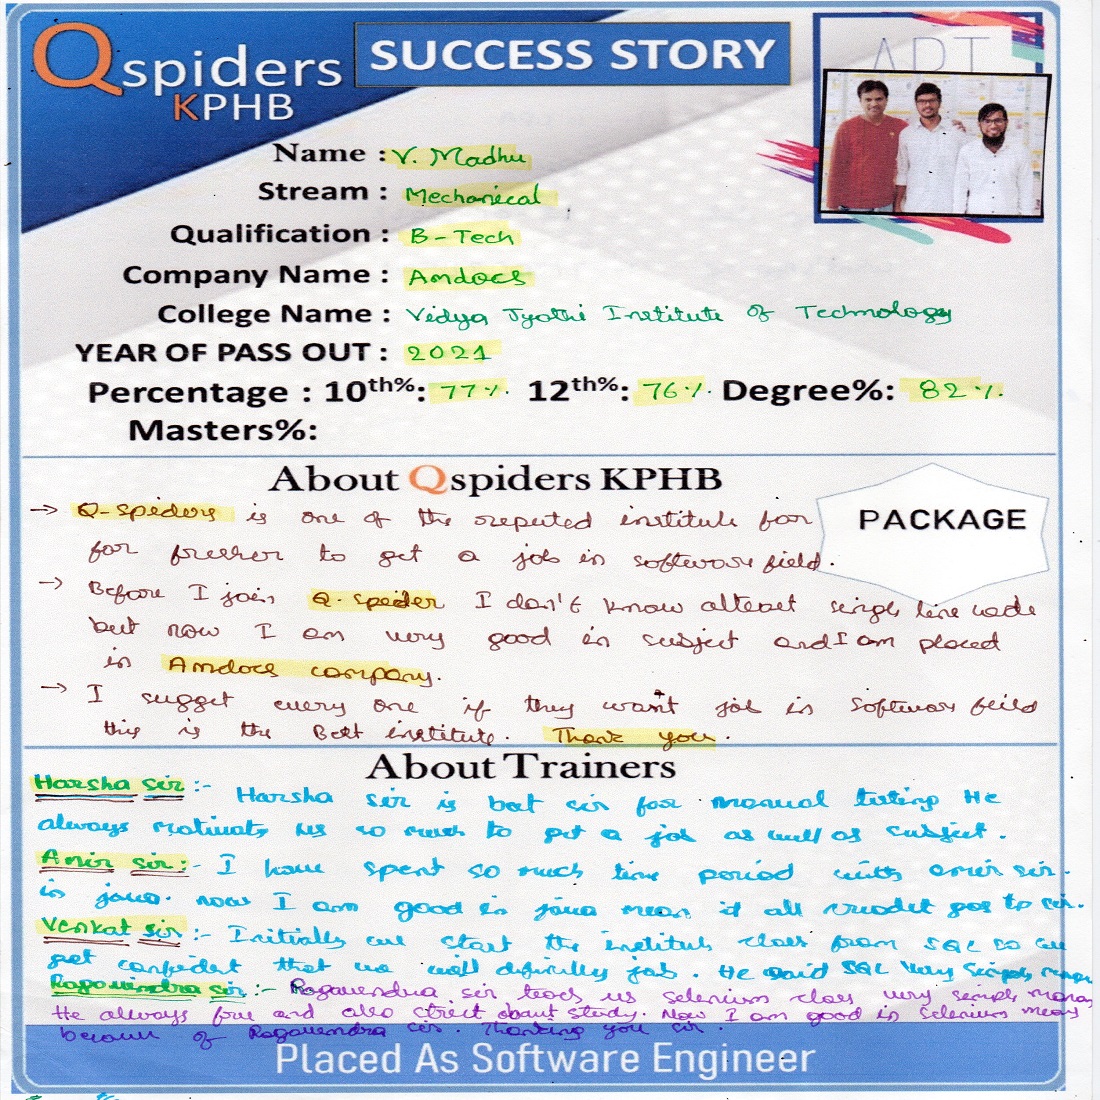 Qspiders
KPHB
SUCCESS STORY
ART
Name : V. Madhu
Stream : Mechanical
Qualification : B-Tech
Company Name : Amdocs
College Name : Vidya Jyothi Institute of Technology
YEAR OF PASS OUT : 2021
Percentage : 10th%: 77% 12th%: 76% Degree%: 82%
Masters%:
About Qspiders KPHB
PACKAGE
→ Q-spiders is one of the reputed institute for
for fresher to get a job in software field.
→ Before I join Q-spider I don't know atleast single line code
but now I am very good in subject and I am placed
in Amdocs company.
→ I suggest every one if they want job in software feild
this is the Best institute. Thank you.
About Trainers
Harsha sir :- Harsha sir is best sir for manual testing He
always motivates us so much to get a job as well as subject.
Amir sir :- I have spent so much time period with amir sir.
in java. now I am good in java mean it all credit goes to sir.
Venkat sir :- Initially we start the institute class from SQL so we
get confident that we will definitly job. He said SQL very simple manner
Ragavendra sir :- Ragavendra sir teach us selenium class very simple manner
He always free and also strict about study. Now I am good in selenium means
because of Ragavendra sir. Thanking you sir.
Placed As Software Engineer